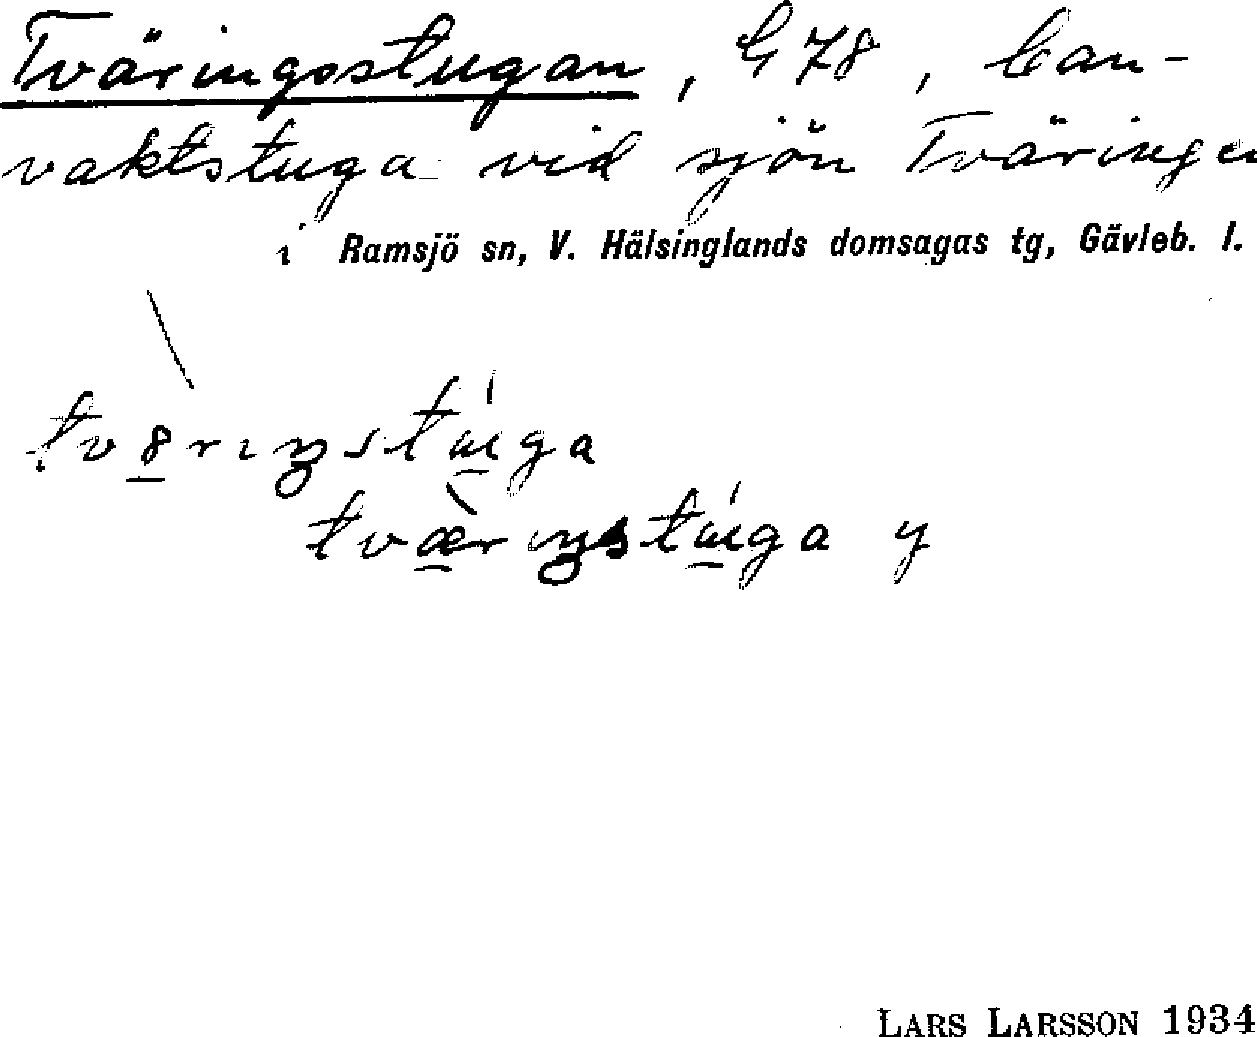 Tväringsstugan, G 78, ban-
vaktstuga vid sjön Tväringen
i Ramsjö sn, V. Hälsinglands domsagas tg, Gävleb. l.
y
LARS LARSSON 1934